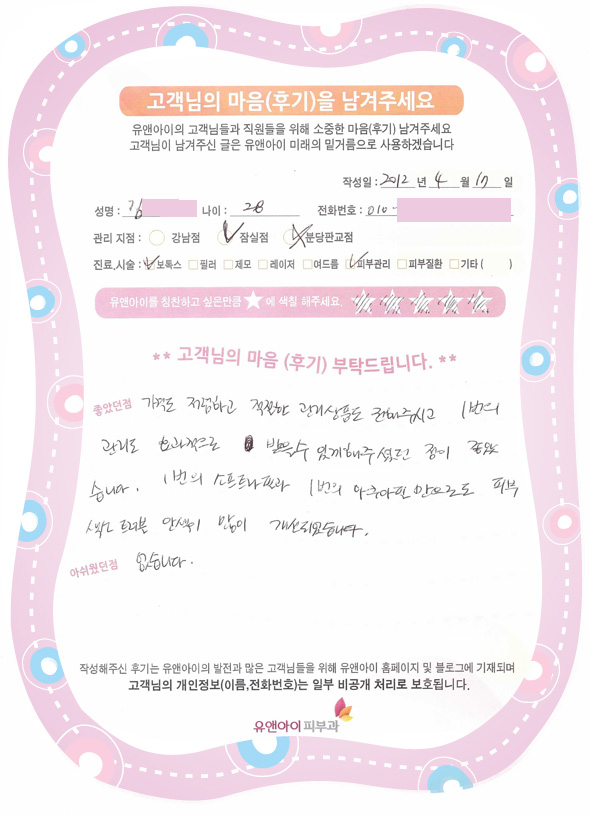 고객님의 마음(후기)을 남겨주세요
유앤아이의 고객님들과 직원들을 위해 소중한 마음(후기) 남겨주세요
고객님이 남겨주신 글은 유앤아이 미래의 밑거름으로 사용하겠습니다
작성일 : 2012 년 4 월 17 일
성명 : 나이 : 28 전화번호 : 010-
관리 지점 : 강남점 잠실점 분당판교점
진료,시술 : 보톡스 필러 제모 레이저 여드름 피부관리 피부질환 기타 ( )
유앤아이를 칭찬하고 싶은만큼 ★에 색칠 해주세요.
** 고객님의 마음 (후기) 부탁드립니다. **
좋았던점 가격도 저렴하고 적절한 관리상품도 권해주시고 1번의
관리로 효과적으로 받을수 있게해주셨던 점이 좋았
습니다. 1번의 소프트나필과 1번의 아쿠아필 만으로도 피부
트러블 안색이 많이 개선되었습니다.
아쉬웠던점 없습니다.
작성해주신 후기는 유앤아이의 발전과 많은 고객님들을 위해 유앤아이 홈페이지 및 블로그에 기재되며
고객님의 개인정보(이름,전화번호)는 일부 비공개 처리로 보호됩니다.
유앤아이피부과